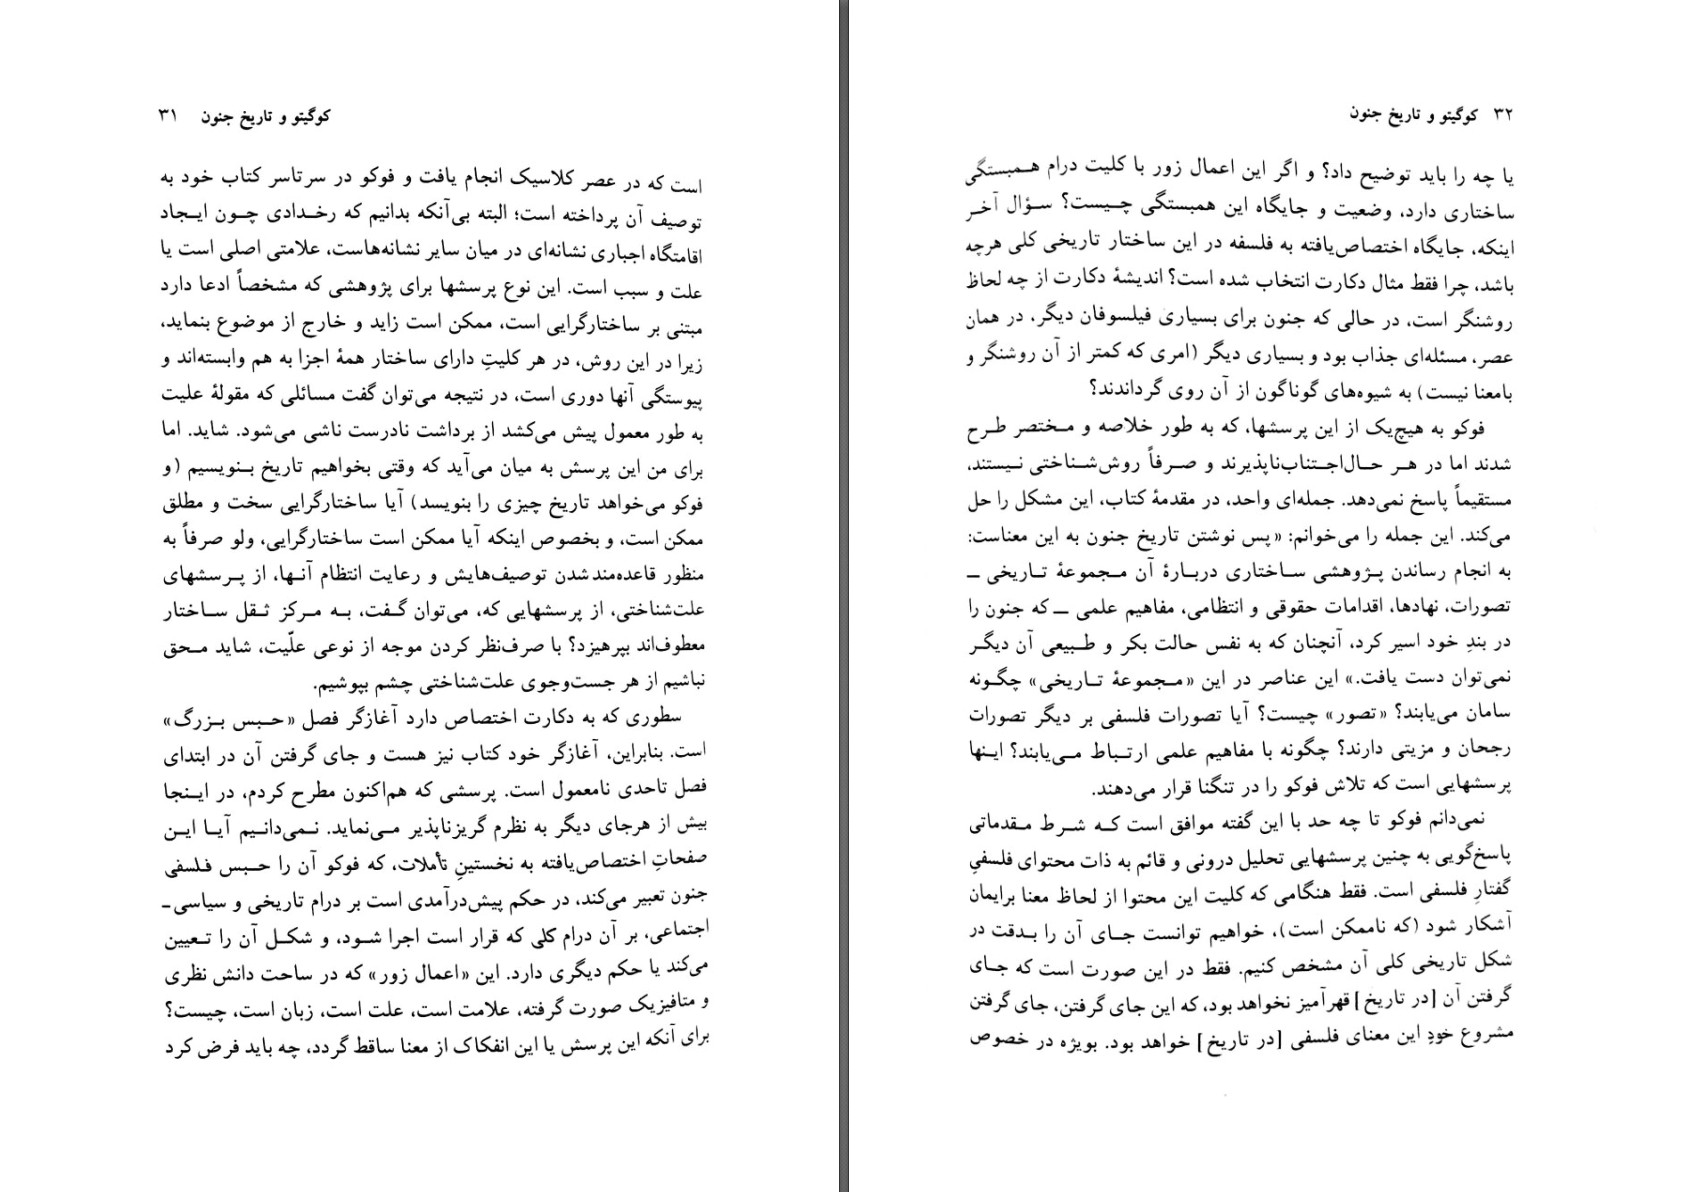 کوگیتو و تاریخ جنون ۳۱
است که در عصر کلاسیک انجام یافت و فوکو در سرتاسر کتاب خود به
توصیف آن پرداخته است؛ البته بی‌آنکه بدانیم که رخدادی چون ایجاد
اقامتگاه اجباری نشانه‌ای در میان سایر نشانه‌هاست، علامتی اصلی است یا
علت و سبب است. این نوع پرسشها برای پژوهشی که مشخصاً ادعا دارد
مبتنی بر ساختارگرایی است، ممکن است زاید و خارج از موضوع بنماید،
زیرا در این روش، در هر کلیتِ دارای ساختار همهٔ اجزا به هم وابسته‌اند و
پیوستگی آنها دوری است، در نتیجه می‌توان گفت مسائلی که مقولهٔ علیت
به طور معمول پیش می‌کشد از برداشت نادرست ناشی می‌شود. شاید. اما
برای من این پرسش به میان می‌آید که وقتی بخواهیم تاریخ بنویسیم (و
فوکو می‌خواهد تاریخ چیزی را بنویسد) آیا ساختارگرایی سخت و مطلق
ممکن است، و بخصوص اینکه آیا ممکن است ساختارگرایی، ولو صرفاً به
منظور قاعده‌مند شدن توصیف‌هایش و رعایت انتظام آنها، از پرسشهای
علت‌شناختی، از پرسشهایی که، می‌توان گفت، به مرکز ثقل ساختار
معطوف‌اند بپرهیزد؟ با صرف‌نظر کردن موجه از نوعی علّیت، شاید محق
نباشیم از هر جست‌وجوی علت‌شناختی چشم بپوشیم.
سطوری که به دکارت اختصاص دارد آغازگر فصل «حبس بزرگ»
است. بنابراین، آغازگر خود کتاب نیز هست و جای گرفتن آن در ابتدای
فصل تاحدی نامعمول است. پرسشی که هم‌اکنون مطرح کردم، در اینجا
بیش از هرجای دیگر به نظرم گریزناپذیر می‌نماید. نمی‌دانیم آیا این
صفحاتِ اختصاص‌یافته به نخستینِ تأملات، که فوکو آن را حبس فلسفی
جنون تعبیر می‌کند، در حکم پیش‌درآمدی است بر درام تاریخی و سیاسی‌ـ
اجتماعی، بر آن درام کلی که قرار است اجرا شود، و شکل آن را تعیین
می‌کند یا حکم دیگری دارد. این «اعمال زور» که در ساحت دانش نظری
و متافیزیک صورت گرفته، علامت است، علت است، زبان است، چیست؟
برای آنکه این پرسش یا این انفکاک از معنا ساقط گردد، چه باید فرض کرد
۳۲ کوگیتو و تاریخ جنون
یا چه را باید توضیح داد؟ و اگر این اعمال زور با کلیت درام همبستگی
ساختاری دارد، وضعیت و جایگاه این همبستگی چیست؟ سؤال آخر
اینکه، جایگاه اختصاص‌یافته به فلسفه در این ساختار تاریخی کلی هرچه
باشد، چرا فقط مثال دکارت انتخاب شده است؟ اندیشهٔ دکارت از چه لحاظ
روشنگر است، در حالی که جنون برای بسیاری فیلسوفان دیگر، در همان
عصر، مسئله‌ای جذاب بود و بسیاری دیگر (امری که کمتر از آن روشنگر و
بامعنا نیست) به شیوه‌های گوناگون از آن روی گرداندند؟
فوکو به هیچ‌یک از این پرسشها، که به طور خلاصه و مختصر طرح
شدند اما در هر حال‌اجتناب‌ناپذیرند و صرفاً روش‌شناختی نیستند،
مستقیماً پاسخ نمی‌دهد. جمله‌ای واحد، در مقدمهٔ کتاب، این مشکل را حل
می‌کند. این جمله را می‌خوانم: «پس نوشتن تاریخ جنون به این معناست:
به انجام رساندن پژوهشی ساختاری دربارهٔ آن مجموعهٔ تاریخی ــ
تصورات، نهادها، اقدامات حقوقی و انتظامی، مفاهیم علمی ــ که جنون را
در بندِ خود اسیر کرد، آنچنان که به نفس حالت بکر و طبیعی آن دیگر
نمی‌توان دست یافت.» این عناصر در این «مجموعهٔ تاریخی» چگونه
سامان می‌یابند؟ «تصور» چیست؟ آیا تصورات فلسفی بر دیگر تصورات
رجحان و مزیتی دارند؟ چگونه با مفاهیم علمی ارتباط می‌یابند؟ اینها
پرسشهایی است که تلاش فوکو را در تنگنا قرار می‌دهند.
نمی‌دانم فوکو تا چه حد با این گفته موافق است که شرط مقدماتی
پاسخ‌گویی به چنین پرسشهایی تحلیل درونی و قائم به ذات محتوای فلسفیِ
گفتارِ فلسفی است. فقط هنگامی که کلیت این محتوا از لحاظ معنا برایمان
آشکار شود (که ناممکن است)، خواهیم توانست جای آن را بدقت در
شکل تاریخی کلی آن مشخص کنیم. فقط در این صورت است که جای
گرفتن آن [در تاریخ] قهرآمیز نخواهد بود، که این جای گرفتن، جای گرفتن
مشروع خودِ این معنای فلسفی [در تاریخ] خواهد بود. بویژه در خصوص